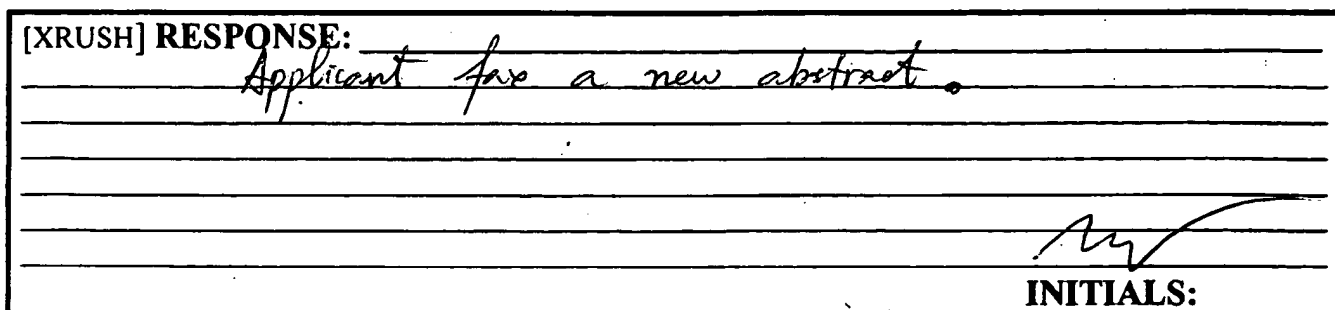 [XRUSH] RESPONSE:
Applicant fax a new abstract.
INITIALS: